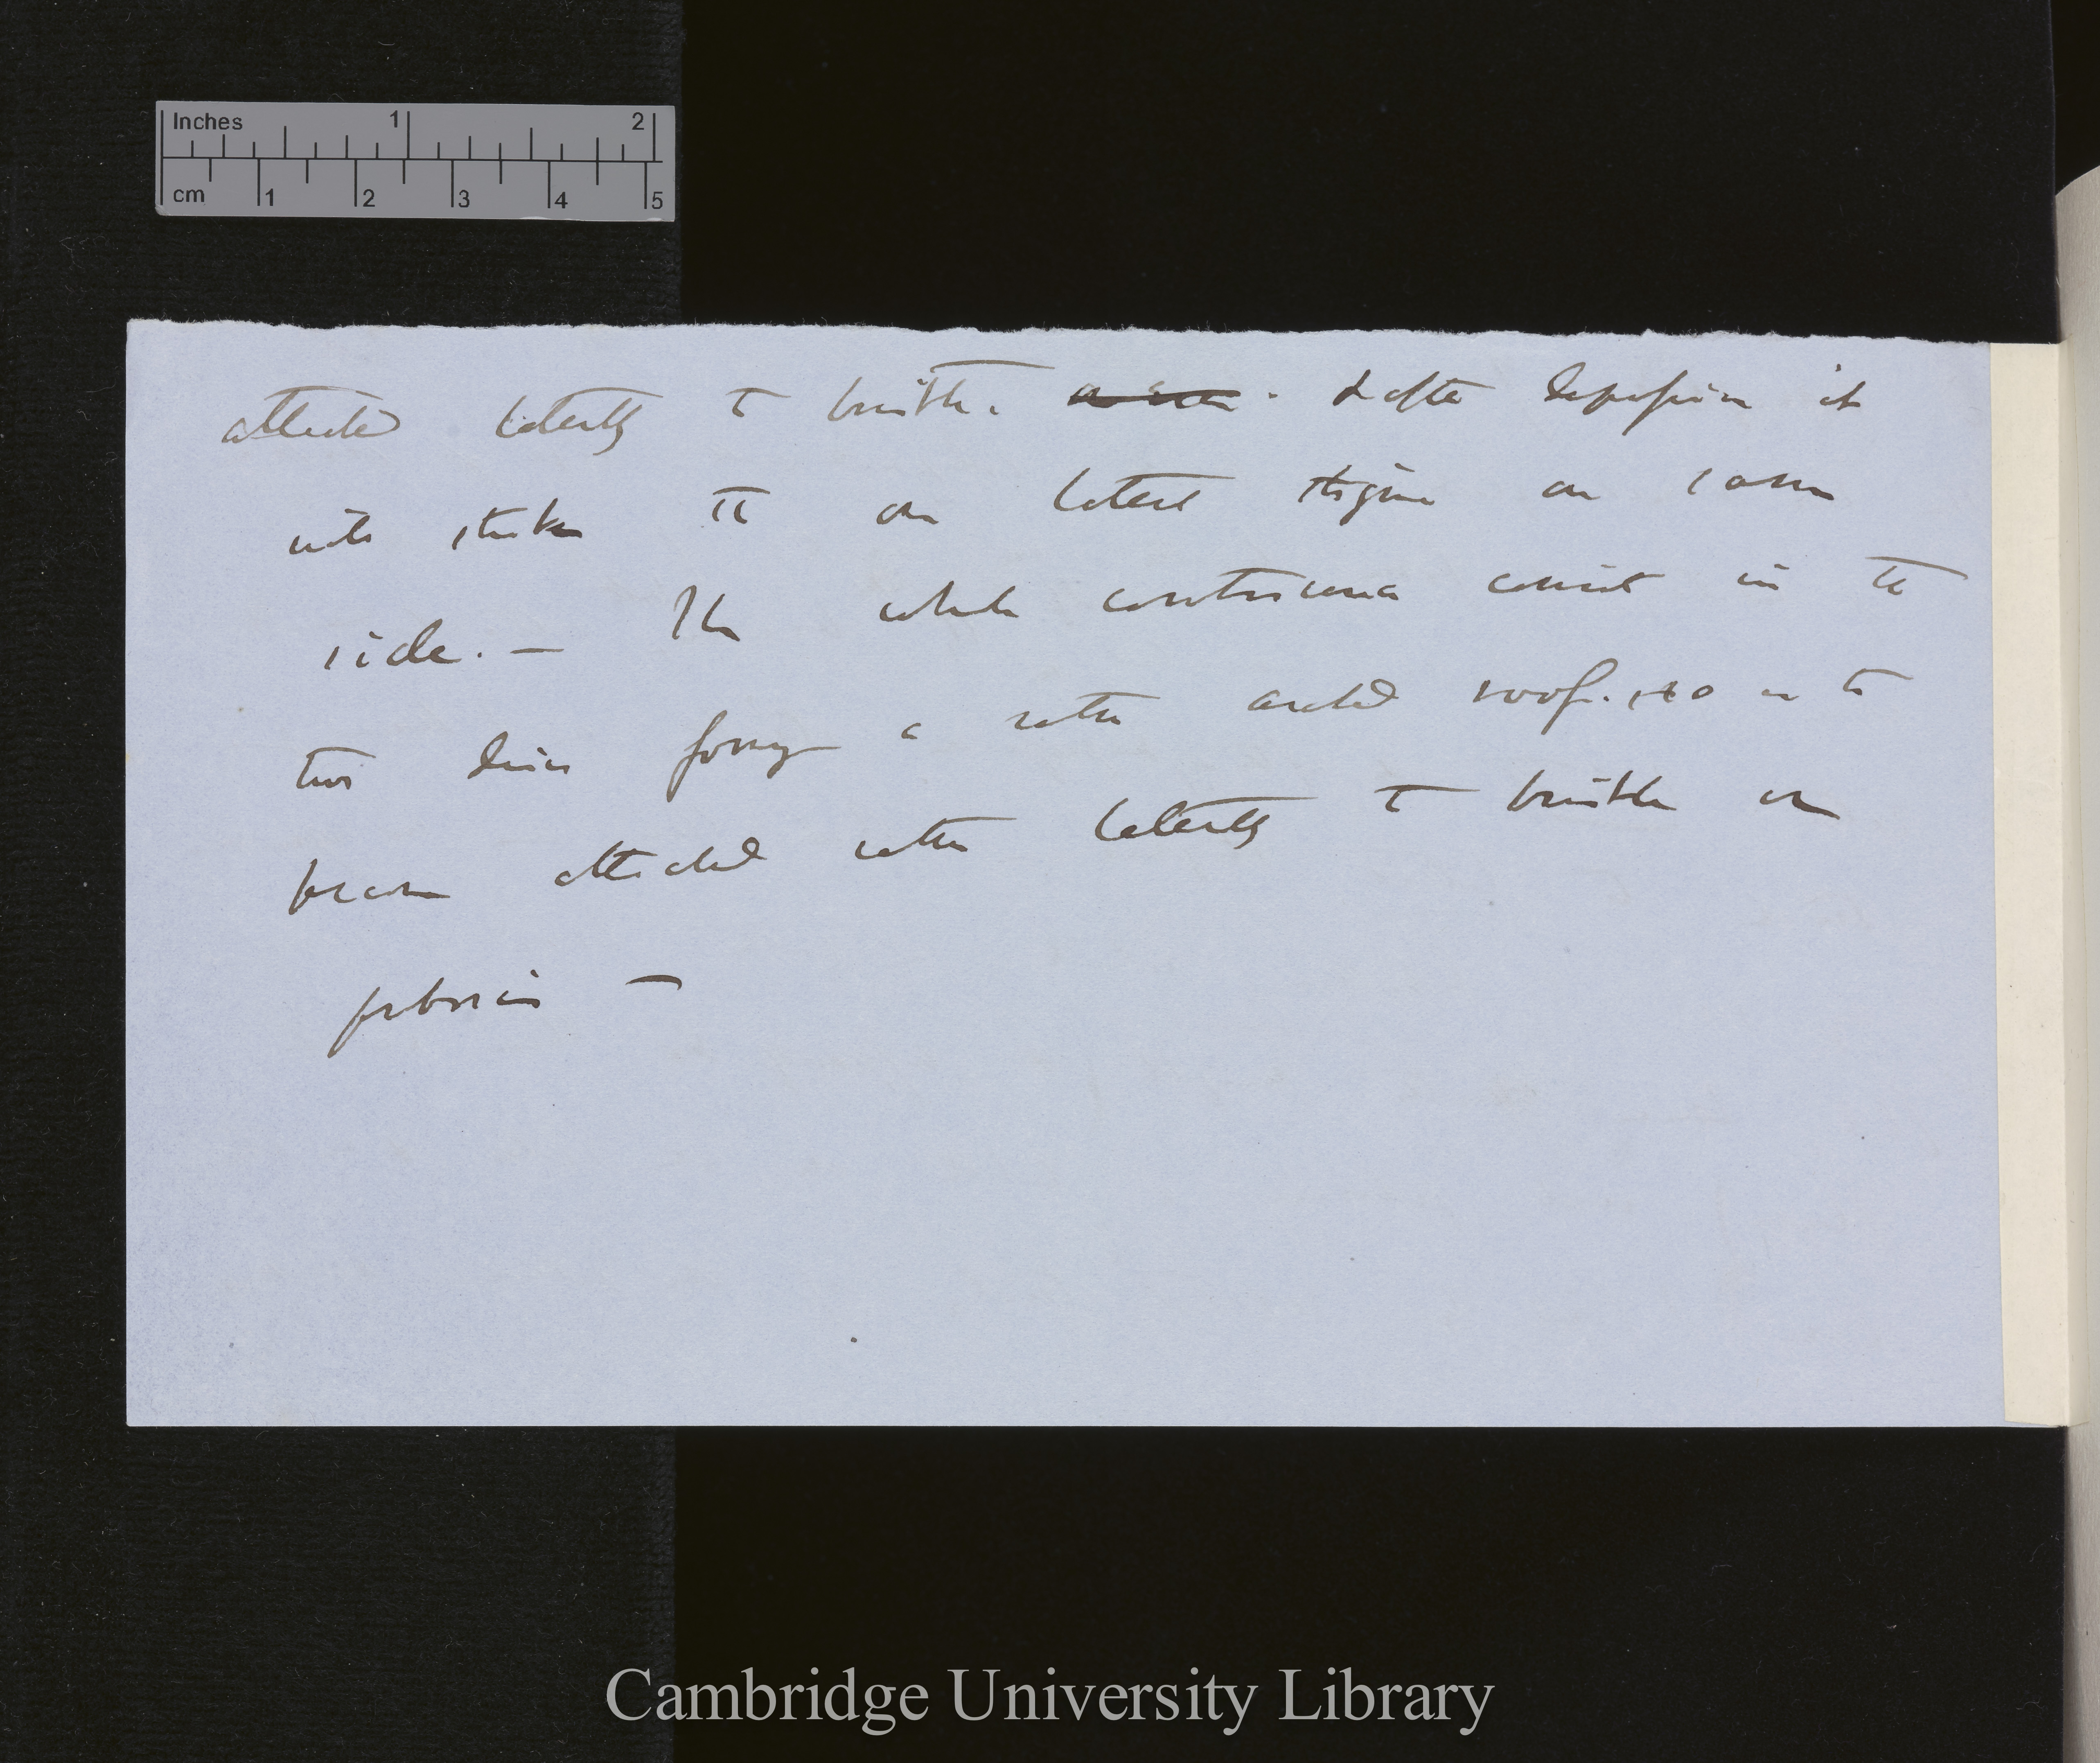 Inches 1 2
cm 1 2 3 4 5
attached laterally to bristle. & after depression it
will strike the on lateral stigma on same
side. — The whole contrivance consist in the
two discs forming a rather arched roof. so as to
become attached rather laterally to bristle or
proboscis —
Cambridge University Library